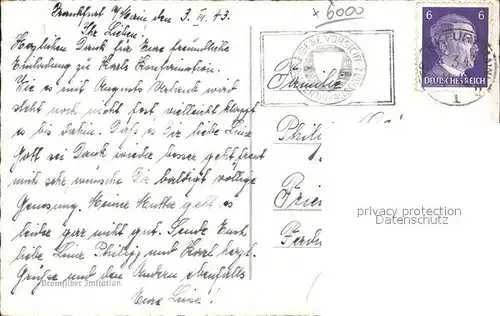 Frankfurt a/Main den 3. III. 43.
Ihr Lieben!
Herzlichen Dank für Eure freundliche
Einladung zu Karls Konfirmation.
Wie es mit Augusts Urlaub wird
steht noch nicht fest vielleicht klappt
es bis dahin. Dass es Dir liebe Luise
Gott sei Dank wieder besser geht freut
mich sehr, wünsche Dir baldigst völlige
Genesung. Meiner Mutter geht es
leider gar nicht gut. Sende Euch
liebe Luise Philipp und Karl herzl.
Grüsse und den Andern ebenfalls
Eure Luise!
Bromsilber Imitation.
x 6000
6 6
DEUTSCHES REICH
Familie
Phili
Frie
Ferdin
privacy protection
Datenschutz